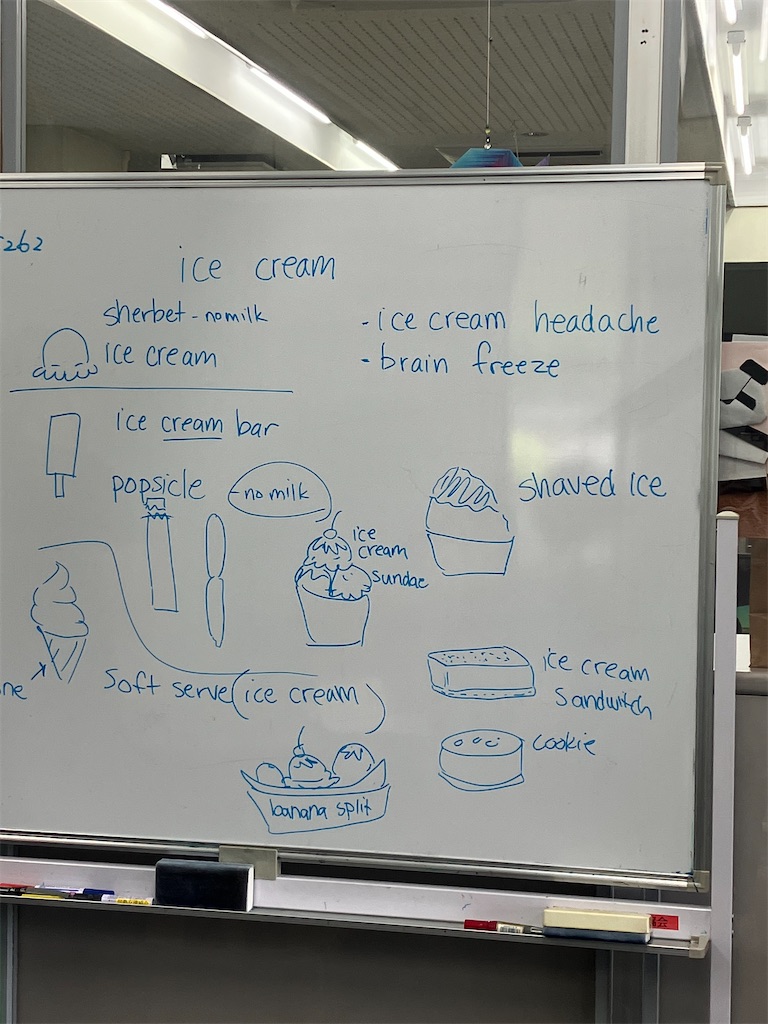 262
ice cream
sherbet - no milk
ice cream
- ice cream headache
- brain freeze
ice cream bar
popsicle
- no milk
shaved ice
ice
cream
sundae
ne
soft serve (ice cream)
ice cream
sandwitch
cookie
banana split